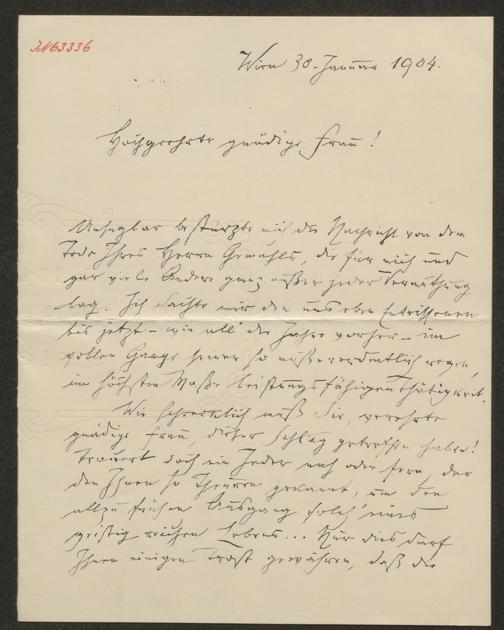 IN 63336
Wien 30. Januar 1904.
Hochgeehrte gnädige Frau!
Unsagbar bestürzte mich die Nachricht von dem
Tode Ihres Herrn Gemahls, die für mich und
gar viele Andere ganz außer jeder Vermuthung
lag. Ich dachte mir den uns eben Entrissenen
bis jetzt – wie all' die Jahre vorher – im
vollen Gange seiner so außerordentlich regen,
im höchsten Maße leistungsfähigen Thätigkeit.
Wie schrecklich muß Sie, verehrte
gnädige Frau, dieser Schlag getroffen haben!
Trauert doch ein Jeder nah oder fern, der
den Ihnen so Theuren gekannt, um den
allzu frühen Ausgang solch' eines
geistig reichen Lebens... Nur dies darf
Ihnen einigen Trost gewähren, daß die